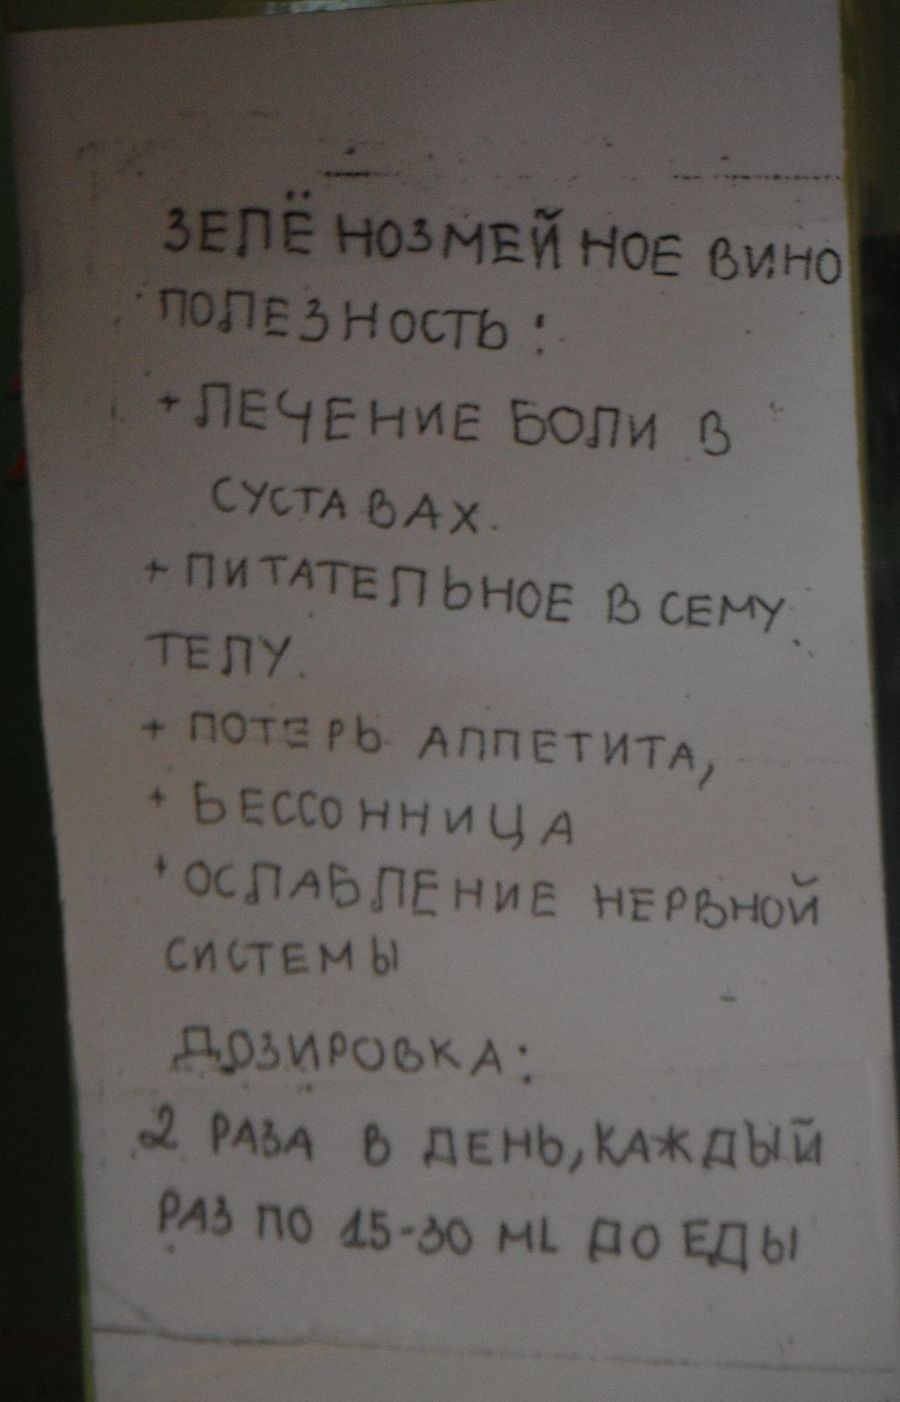 ЗЕЛЁНОЗМЕЙНОЕ ВИНО
ПОЛЕЗНОСТЬ:
+ ЛЕЧЕНИЕ БОЛИ В
СУСТАВАХ.
+ ПИТАТЕЛЬНОЕ ВСЕМУ
ТЕЛУ.
+ ПОТЕРЬ АППЕТИТА,
+ БЕССОННИЦА
+ ОСЛАБЛЕНИЕ НЕРВНОЙ
СИСТЕМЫ
ДОЗИРОВКА:
2 РАЗА В ДЕНЬ, КАЖДЫЙ
РАЗ ПО 15-30 ML ДО ЕДЫ